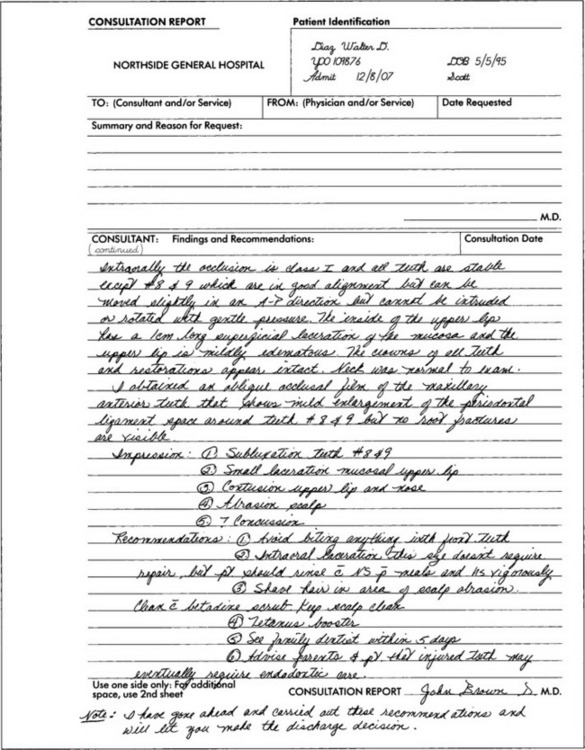 CONSULTATION REPORT
Patient Identification
Diaz Walter D.
YPO 109876
DOB 5/5/95
Admit 12/8/07
Scott
NORTHSIDE GENERAL HOSPITAL
TO: (Consultant and/or Service)
FROM: (Physician and/or Service)
Date Requested
Summary and Reason for Request:
M.D.
CONSULTANT: Findings and Recommendations:
Consultation Date
(continued)
Intraorally the occlusion is class I and all teeth are stable
except #8 & 9 which are in good alignment but can be
moved slightly in an A-P direction but cannot be intruded
or rotated with gentle pressure. The inside of the upper lip
has a 1cm long superficial laceration of the mucosa and the
upper lip is mildly edematous. The crowns of all teeth
and restorations appear intact. Neck was normal to exam.
I obtained an oblique occlusal film of the maxillary
anterior teeth that shows mild enlargement of the periodontal
ligament space around teeth #8 & 9 but no root fractures
are visible.
Impression: ① Subluxation teeth #8 & 9
② Small laceration mucosal upper lip
③ Contusion upper lip and nose
④ Abrasion scalp
⑤ ? Concussion
Recommendations: ① Avoid biting anything with front teeth
② Intraoral laceration this size doesn't require
repair, but pt should rinse c̄ NS p̄ meals and HS vigorously
③ Shave hair in area of scalp abrasion.
Clean c̄ betadine scrub. Keep scalp clean
④ Tetanus booster
⑤ See family dentist within 5 days
⑥ Advise parents & pt that injured teeth may
eventually require endodontic care.
Use one side only: For additional
space, use 2nd sheet
CONSULTATION REPORT John Brown M.D.
Note: I have gone ahead and carried out these recommendations and
will let you make the discharge decision.